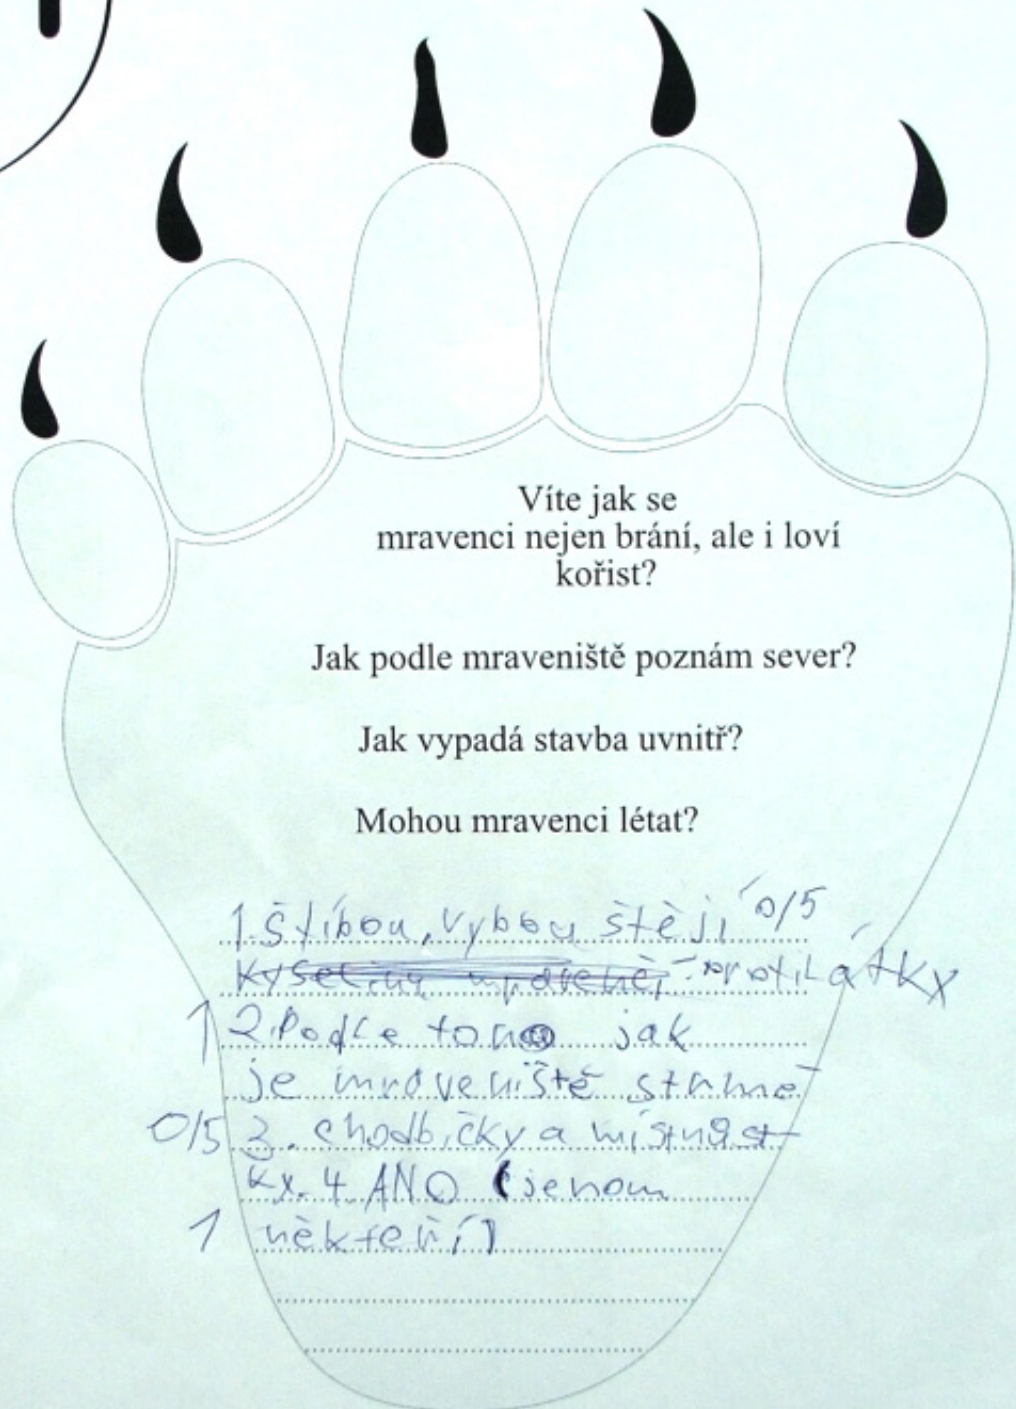 Víte jak se
mravenci nejen brání, ale i loví
kořist?
Jak podle mraveniště poznám sever?
Jak vypadá stavba uvnitř?
Mohou mravenci létat?
1. Štíbou, vybou štějí 0/5
kyselinu mravenčí protilátky
1 2. Podle toho jak
je mraveniště strmé
0/5 3. chodbičky a místnůst
ky. 4. ANO (jenom
1 někteří)